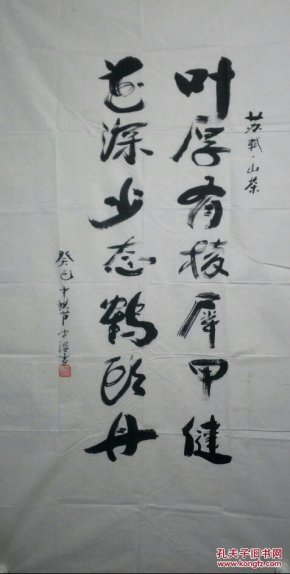 苏轼·山茶
叶厚有棱犀甲健
花深少态鹤頭丹
癸巳
孔夫子旧书网
www.kongfz.com